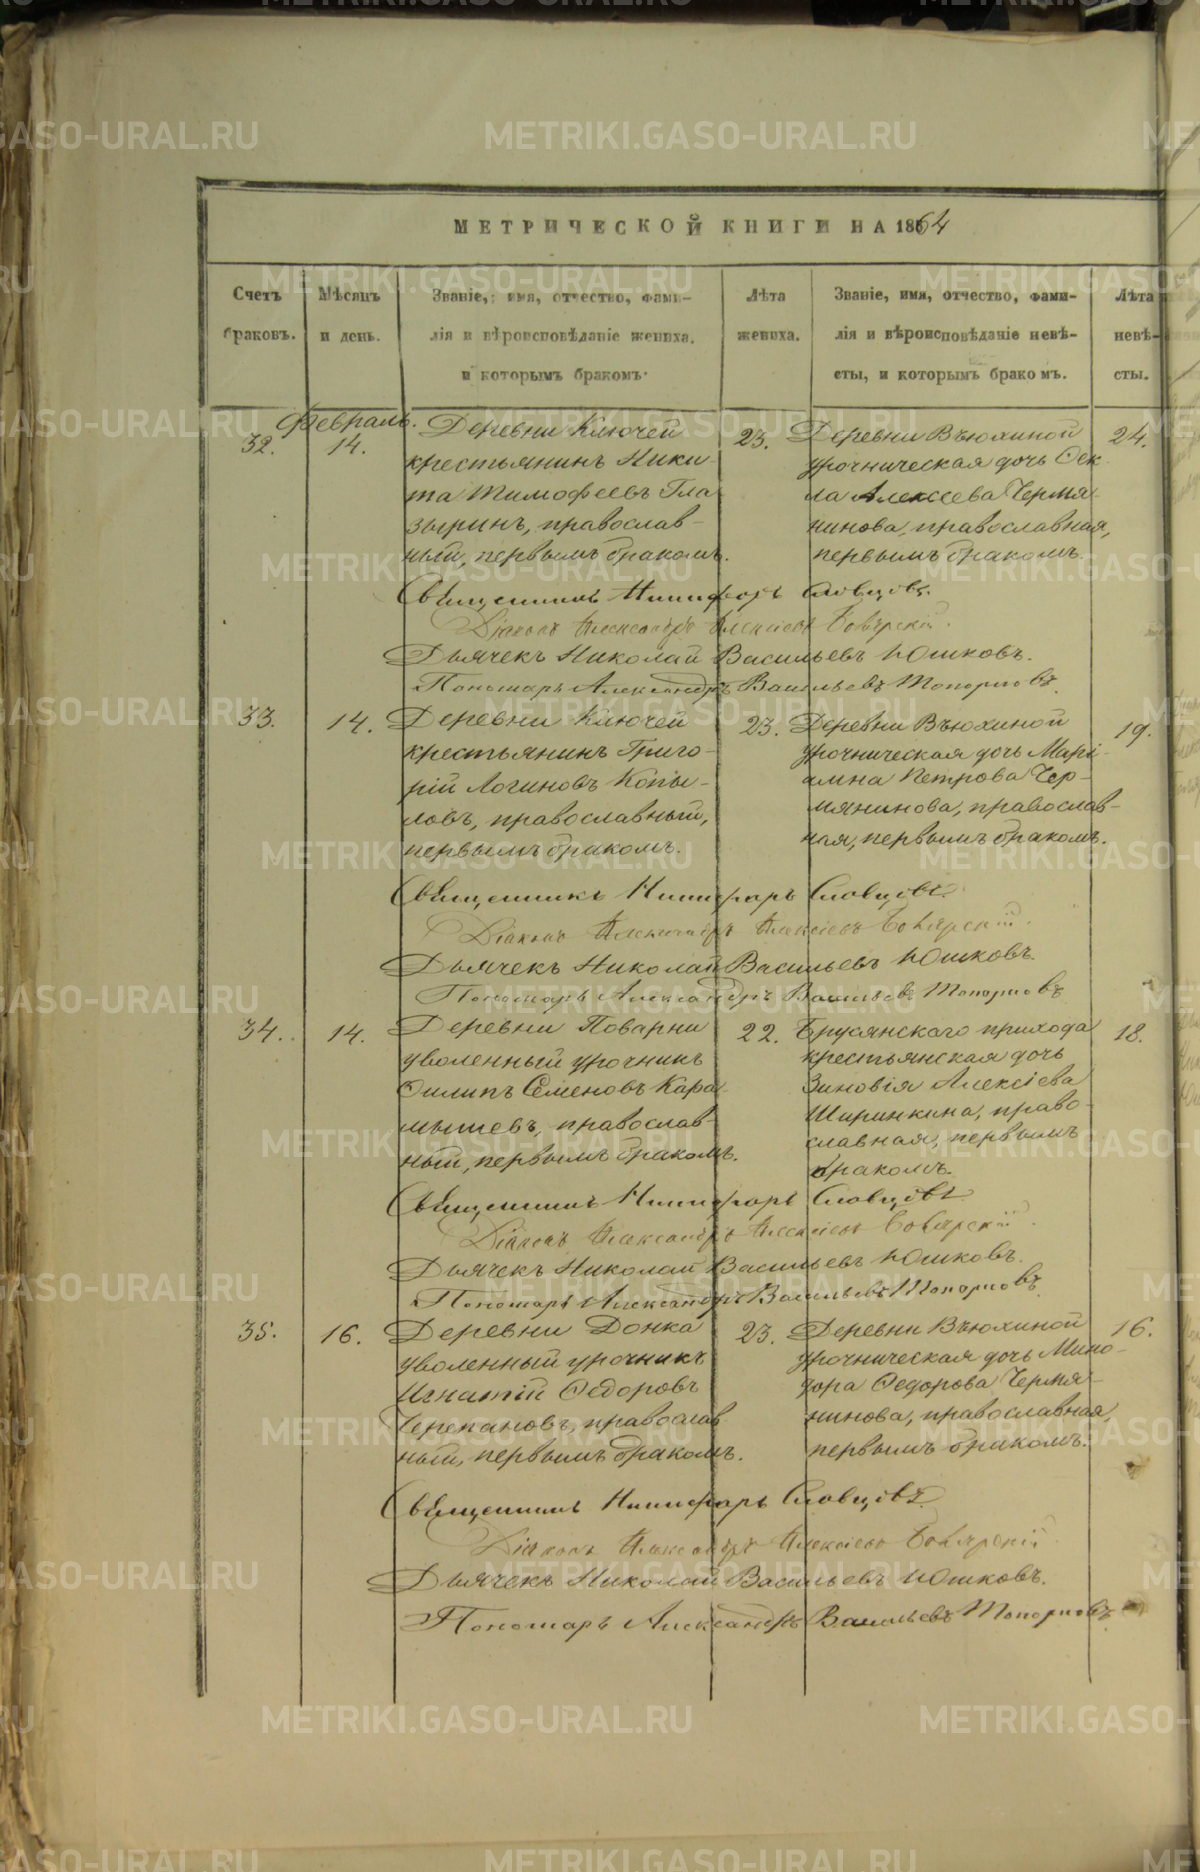 МЕТРИЧЕСКОЙ КНИГИ НА 1864
Счетъ браковъ.
Мѣсяцъ и день.
Званіе, имя, отчество, фами-
лія и вѣроисповѣданіе жениха,
и которымъ бракомъ.
Лѣта жениха.
Званіе, имя, отчество, фами-
лія и вѣроисповѣданіе невѣ-
сты, и которымъ бракомъ.
Лѣта невѣ-
сты.
Февраль.
32.
14.
Деревни Ключей
крестьянинъ Ники
та Тимофеевъ Гла
зыринъ, православ-
ный, первымъ бракомъ.
23.
Деревни Вьюхиной
урочническая дочь Ѳек
ла Алексеева Чермя
нинова, православная,
первымъ бракомъ.
24.
Священникъ Никифоръ Словцовъ.
Діаконъ Александръ Алексіевъ Боярскій.
Дьячекъ Николай Васильевъ Юшковъ.
Пономарь Александръ Васильевъ Топорковъ.
33.
14.
Деревни Ключей
крестьянинъ Григо-
рій Логиновъ Копы-
ловъ, православный,
первымъ бракомъ.
23.
Деревни Вьюхиной
урочническая дочь Марі-
амна Петрова Чер-
мянинова, православ-
ная, первымъ бракомъ.
19.
Священникъ Никифоръ Словцовъ.
Діаконъ Александръ Алексіевъ Боярскій.
Дьячекъ Николай Васильевъ Юшковъ.
Пономарь Александръ Васильевъ Топорковъ
34.
14.
Деревни Поварни
уволенный урочникъ
Филипъ Семеновъ Кара
мышевъ, православ-
ный, первымъ бракомъ.
22.
Брусянскаго прихода
крестьянская дочь
Зиновія Алексіева
Ширинкина, право-
славная, первымъ
бракомъ.
18.
Священникъ Никифоръ Словцовъ
Діаконъ Александръ Алексіевъ Боярскій.
Дьячекъ Николай Васильевъ Юшковъ.
Пономарь Александръ Васильевъ Топорковъ.
35.
16.
Деревни Донка
уволенный урочникъ
Игнатій Ѳедоровъ
Черепановъ, православ
ный, первымъ бракомъ.
23.
Деревни Вьюхиной
урочническая дочь Мино-
дора Ѳедорова Чермя-
нинова, православная,
первымъ бракомъ.
16.
Священникъ Никифоръ Словцовъ.
Діаконъ Александръ Алексіевъ Боярскій
Дьячекъ Николай Васильевъ Юшковъ.
Пономарь Александръ Васильевъ Топорковъ.
METRIKI.GASO-URAL.RU